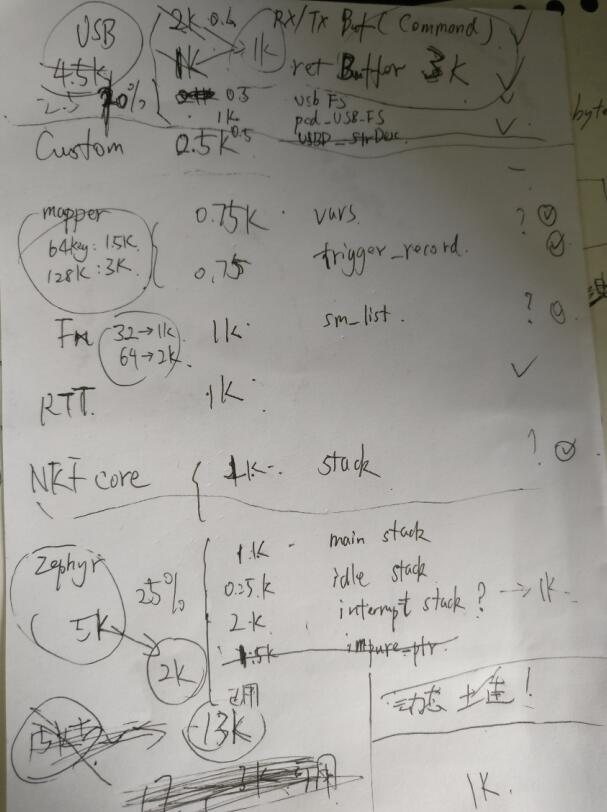 USB 2K 0.4 RX/TX Buf (Command) ✓
4.5K 1K 1K ret Buffer 3K
2.5 20% 0.3 usb FS ✓
1K pcd_USB_FS ✓
Custom 0.5K 0.5 USBD_StrDesc
mapper 0.75K vars. ? ✓
64key: 1.5K
128K: 3K 0.75 trigger_record. ✓
Fn 32→1K 1K sm_list. ?
64→2K
RTT. 1K ✓
NKF core 1K stack ? ✓
Zephyr 1K main stack
25% 0.25K idle stack
5K 2K interrupt stack ? → 1K
2K 1.5K impure_ptr
13K
1K.
byte